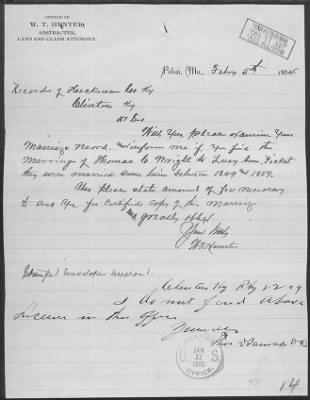 OFFICE OF
W. T. HUNTER,
ABSTRACTER,
LAND AND CLAIM ATTORNEY.
Mo., Feby 5th 1904
Recorder of Hickman Co Ky
Clinton Ky
Dr Sir
Will you please examine your
Marriage record and inform me if you find the
Marriage of Thomas C. Wright to Lucy Ann
they were married some time between 1849 and 1859.
Also please state amount of fee necessary
to secure for Certified Copy of this Marriage
and greatly oblige
Yours Truly
W. T. Hunter
Stamped Envelope Enclosed.
Clinton Ky Feby 12 04
I do not find above
license in this office
Yours
PENSION
U. S.
JAN
11
1905
OFFICE.
14